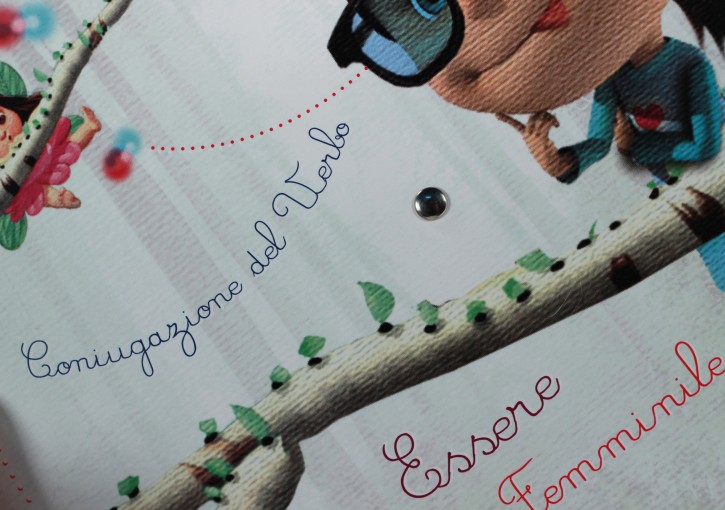 Coniugazione del Verbo
Essere
Femminile